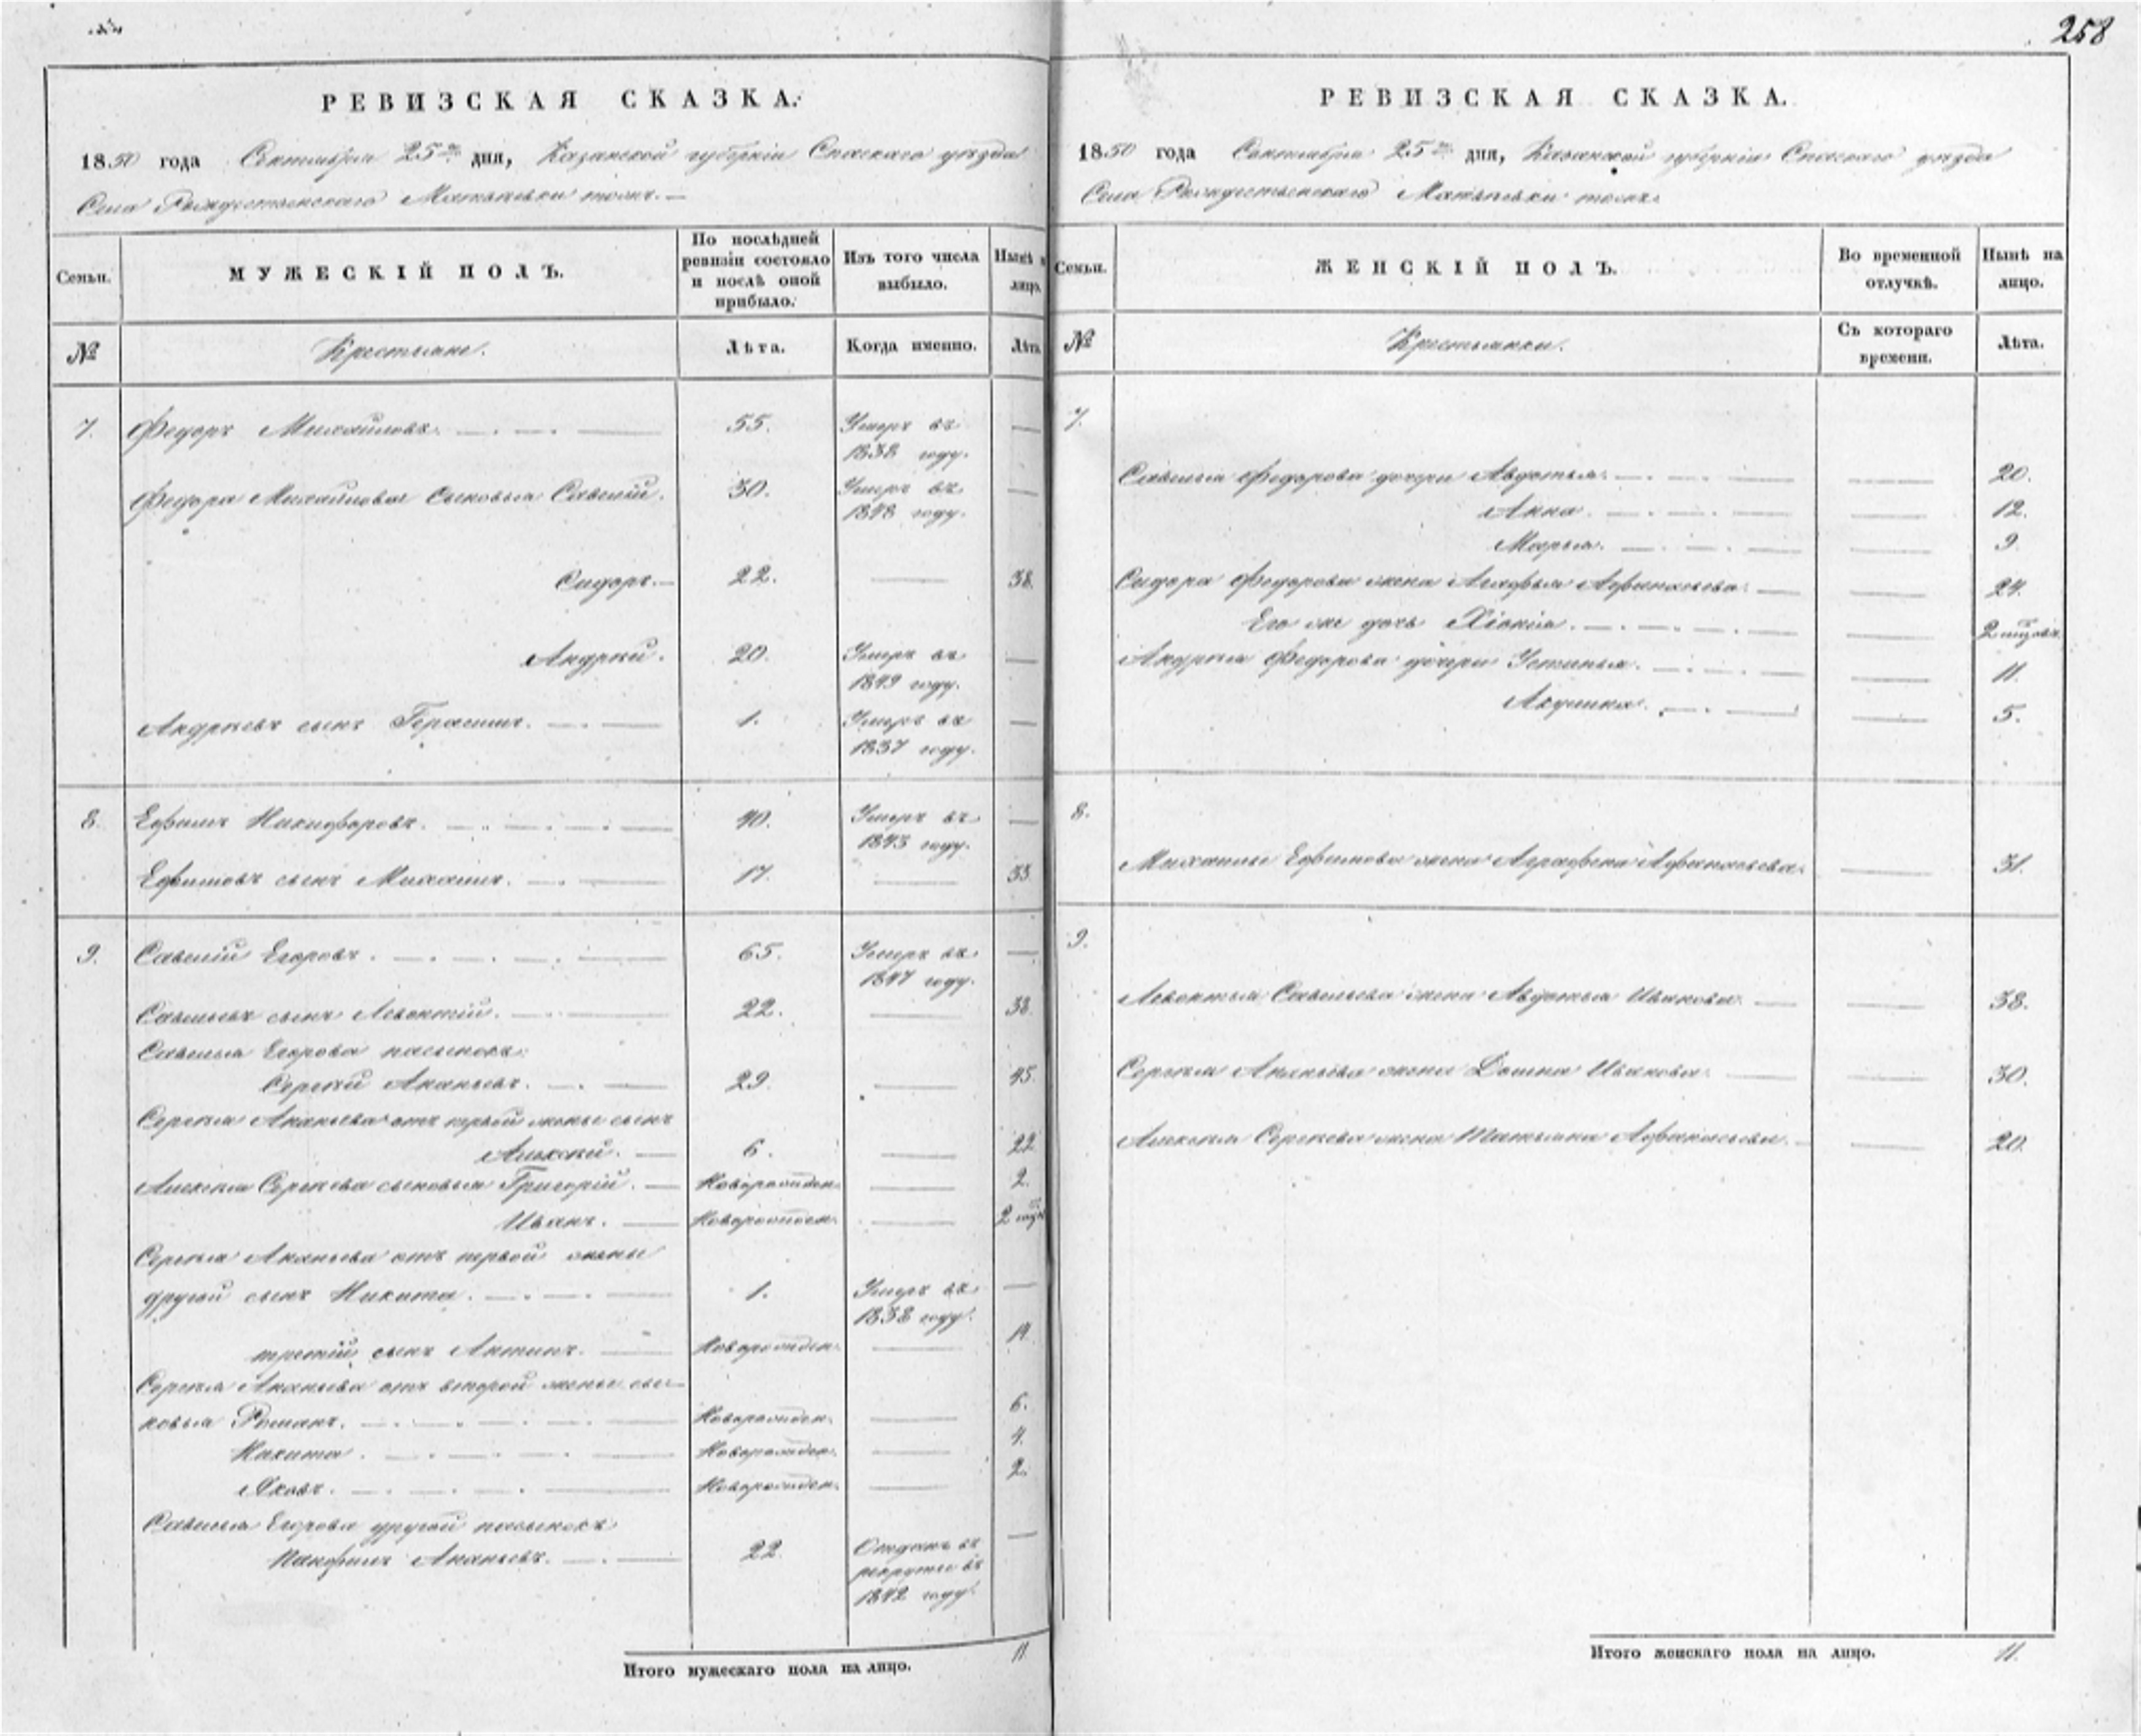 258
РЕВИЗСКАЯ СКАЗКА.
1850 года Сентября 25го дня, Казанской губерніи Спаскаго уѣзда
Села Рождественскаго Матвѣевки тожъ.—
Семьи.
МУЖЕСКІЙ ПОЛЪ.
По послѣдней ревизіи состояло и послѣ оной прибыло.
Изъ того числа выбыло.
Нынѣ на лицо.
№
Крестьяне.
Лѣта.
Когда именно.
Лѣта
7. Федоръ Михайловъ. 55. Умеръ въ
1838 году.
Федора Михайлова сыновья Савелій. 30. Умеръ въ
1848 году.
Сидоръ. 22. 38.
Андрей. 20. Умеръ въ
1849 году.
Андреевъ сынъ Герасимъ. 1. Умеръ въ
1837 году.
8. Ефимъ Никифоровъ. 40. Умеръ въ
1843 году.
Ефимовъ сынъ Михаилъ. 17. 33.
9. Савелій Егоровъ. 65. Умеръ въ
1847 году.
Савельевъ сынъ Левонтій. 22. 38.
Савелья Егорова пасынокъ:
Сергѣй Ананьевъ. 29. 45.
Сергѣя Ананьева отъ первой жены сынъ
Алексѣй. 6. 22.
Алексѣя Сергѣева сыновья Григорій. Новорожден. 2.
Иванъ. Новорожден. 2 мѣся
Сергѣя Ананьева отъ первой жены
другой сынъ Никита. 1. Умеръ въ
1838 году.
третій сынъ Антипъ. Новорожден. 14.
Сергѣя Ананьева отъ второй жены сы-
новья Романъ. Новорожден. 6.
Никита. Новорожден. 4.
Яковъ. Новорожден. 2.
Савелья Егорова другой пасынокъ
Панфилъ Ананьевъ. 22. Отданъ въ
рекруты въ
1842 году.
Итого мужескаго пола на лицо. 11
РЕВИЗСКАЯ СКАЗКА.
1850 года Сентября 25го дня, Казанской губерніи Спаскаго уѣзда
Села Рождественскаго Матвѣевки тожъ.
Семьи.
ЖЕНСКІЙ ПОЛЪ.
Во временной отлучкѣ.
Нынѣ на лицо.
№
Крестьянки.
Съ котораго времени.
Лѣта.
7.
Савелья Федорова дочери Авдотья. 20.
Анна. 12.
Марья. 9.
Сидора Федорова жена Агафья Афанасьева. 24.
Его же дочь Хіонія. 2 мѣсяц.
Андрея Федорова дочери Устинья. 11.
Акулина. 5.
8.
Михаилы Ефимова жена Аграфена Афанасьева. 31.
9.
Левонтья Савельева жена Авдотья Иванова. 38.
Сергѣя Ананьева жена Домна Иванова. 30.
Алексѣя Сергѣева жена Татьяна Афанасьева. 20.
Итого женскаго пола на лицо. 11.